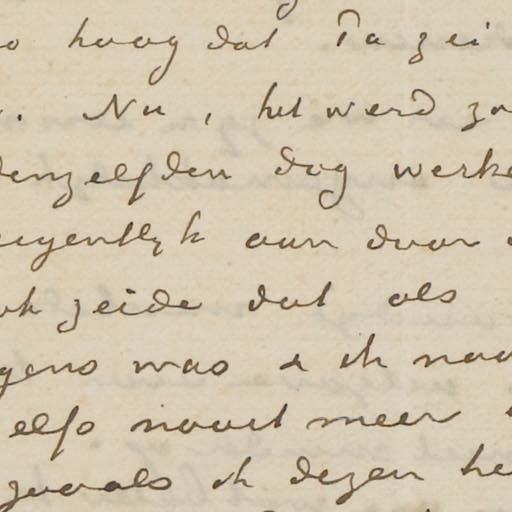 o hoog dat Pa zei
. Nu, het werd zo
denzelfden dag werke
eigentlijk aan door
ok zeide dat als
gens was & ik naa
elfs nooit meer
zooals ik dezen he